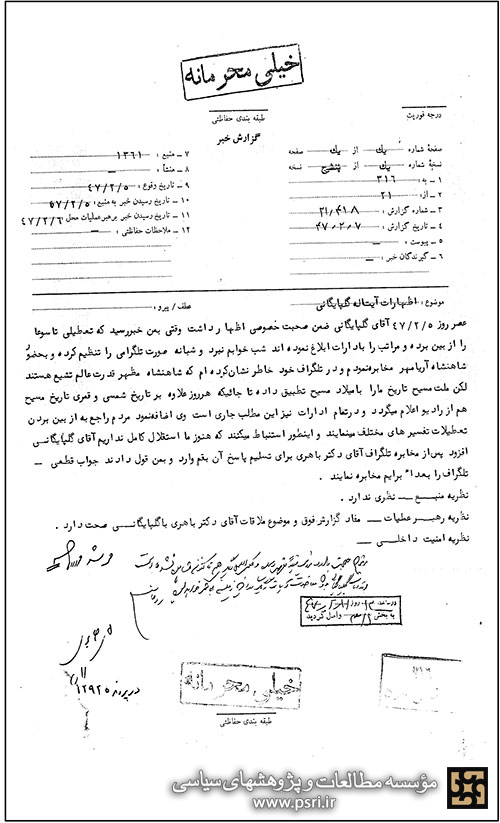 خیلی محرمانه
طبقه بندی حفاظتی
درجه فوریت
گزارش خبر
صفحه شماره يك از يك صفحه
نسخهٔ شماره يك از پنج نسخه
۱ – به : ۳۱۶
۲ – از : ۲۱
۳ – شماره گزارش : ۲۱/۴۱۸
۴ – تاریخ گزارش : ۴۷/۲/۷
۵ – پیوست : –
۶ – گیرندگان خبر : –
۷ – منبع : ۱۳۶۱
۸ – منشأ : –
۹ – تاریخ وقوع : ۴۷/۲/۵
۱۰ – تاریخ رسیدن خبر به منبع : ۴۷/۲/۵
۱۱ – تاریخ رسیدن خبر برهبر عملیات محل : ۴۷/۲/۶
۱۲ – ملاحظات حفاظتی : –
موضوع : اظهارات آیت‌اله گلپایگانی
عطف / پیرو :
عصر روز ۴۷/۲/۵ آقای گلپایگانی ضمن صحبت خصوصی اظهار داشت وقتی بمن خبر رسید که تعطیلی تاسوعا
را از بین برده و مراتب را بادارات ابلاغ نموده اند شب خوابم نبرد و شبانه صورت تلگرامی را تنظیم کرده و بحضور
شاهنشاه آریامهر مخابره نمودم و در تلگراف خود خاطر نشان کرده ام که شاهنشاه مظهر قدرت عالم تشیع هستند
لکن ملت مسیح تاریخ ما را با میلاد مسیح تطبیق داده تا جائیکه هر روز علاوه بر تاریخ شمسی و قمری تاریخ مسیح
هم از رادیو اعلام میگردد و در تمام ادارات نیز این مطلب جاری است وی اضافه نمود مردم راجع به از بین بردن
تعطیلات تفسیرهای مختلف مینمایند و اینطور استنباط میکنند که هنوز ما استقلال کامل نداریم آقای گلپایگانی
افزود پس از مخابره تلگراف آقای دکتر باهری برای تسلیم پاسخ آن بقم وارد و بمن قول دادند جواب قطعی –
تلگراف را بعداً برایم مخابره نمایند .
نظریه منبع – نظری ندارد .
نظریه رهبر عملیات – مفاد گزارش فوق و موضوع ملاقات آقای دکتر باهری با گلپایگانی صحت دارد .
نظریه امنیت داخلی –
به بخش واصل گردید
در پرونده ۱۲۹۲۵
خیلی محرمانه
طبقه بندی حفاظتی
مؤسسه مطالعات و پژوهشهای سیاسی
www.psri.ir